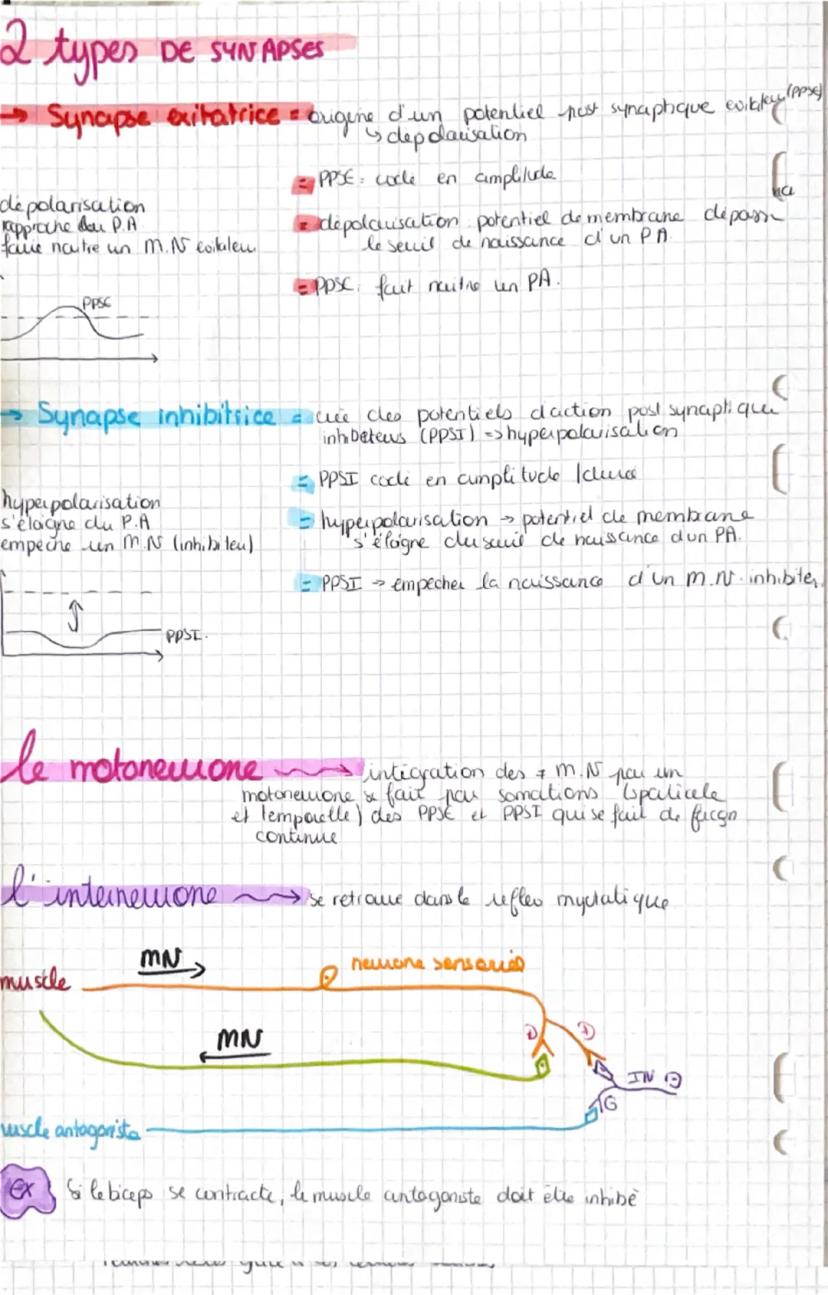 2 types DE SYNAPSES
→ Synapse exitatrice = origine d'un potentiel post synaptique exitateur (PPSE)
↳ depolarisation
= PPSE : codé en amplitude
dépolarisation
rapproche du P.A
faire naitre un M.N exitateur
= dépolarisation potentiel de membrane dépasse
le seuil de naissance d'un PA
= PPSE : fait naitre un PA.
PPSE
→ Synapse inhibitrice = crée des potentiels d'action post synaptique
inhibiteurs (PPSI) => hyperpolarisation
= PPSI codé en amplitude /durée
hyperpolarisation
s'éloigne du P.A
empeche un M.N (inhibiteur)
= hyperpolarisation → potentiel de membrane
s'éloigne du seuil de naissance d'un PA.
= PPSI → empecher la naissance d'un M.N. inhibiter
PPSI.
le motoneurone → intégration des ≠ M.N par un
motoneurone se fait par somations (spatiale
et temporelle) des PPSE et PPSI qui se fait de façon
continue
l'interneurone → se retrouve dans le reflex myotatique
MN
neurone sensoriel
muscle
MN
IN ⊖
muscle antagoniste
Ex Si le biceps se contracte, le muscle antagoniste doit être inhibé